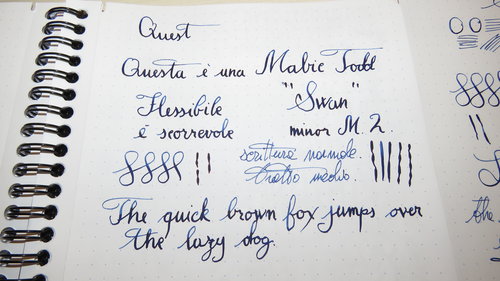 Quest
Questa è una Mabie Todd
Flessibile "Swan"
è scorrevole minor M. 2.
scrittura normale.
tratto medio.
The quick brown fox jumps over
the lazy dog.
the